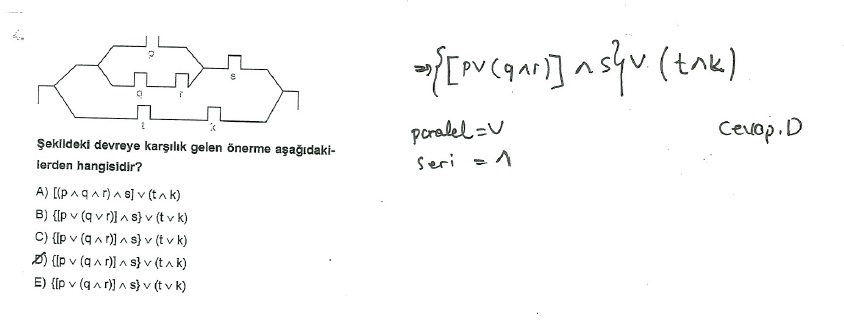 p
s
q r
t k
Şekildeki devreye karşılık gelen önerme aşağıdaki-
lerden hangisidir?
A) [(p ∧ q ∧ r) ∧ s] ∨ (t ∧ k)
B) {[p ∨ (q ∨ r)] ∧ s} ∨ (t ∨ k)
C) {[p ∨ (q ∧ r)] ∧ s} ∨ (t ∨ k)
D) {[p ∨ (q ∧ r)] ∧ s} ∨ (t ∧ k)
E) {[p ∨ (q ∧ r)] ∧ s} ∨ (t ∨ k)
⇒ {[p∨(q∧r)] ∧ s} ∨ (t∧k)
paralel = ∨
seri = ∧
Cevap. D